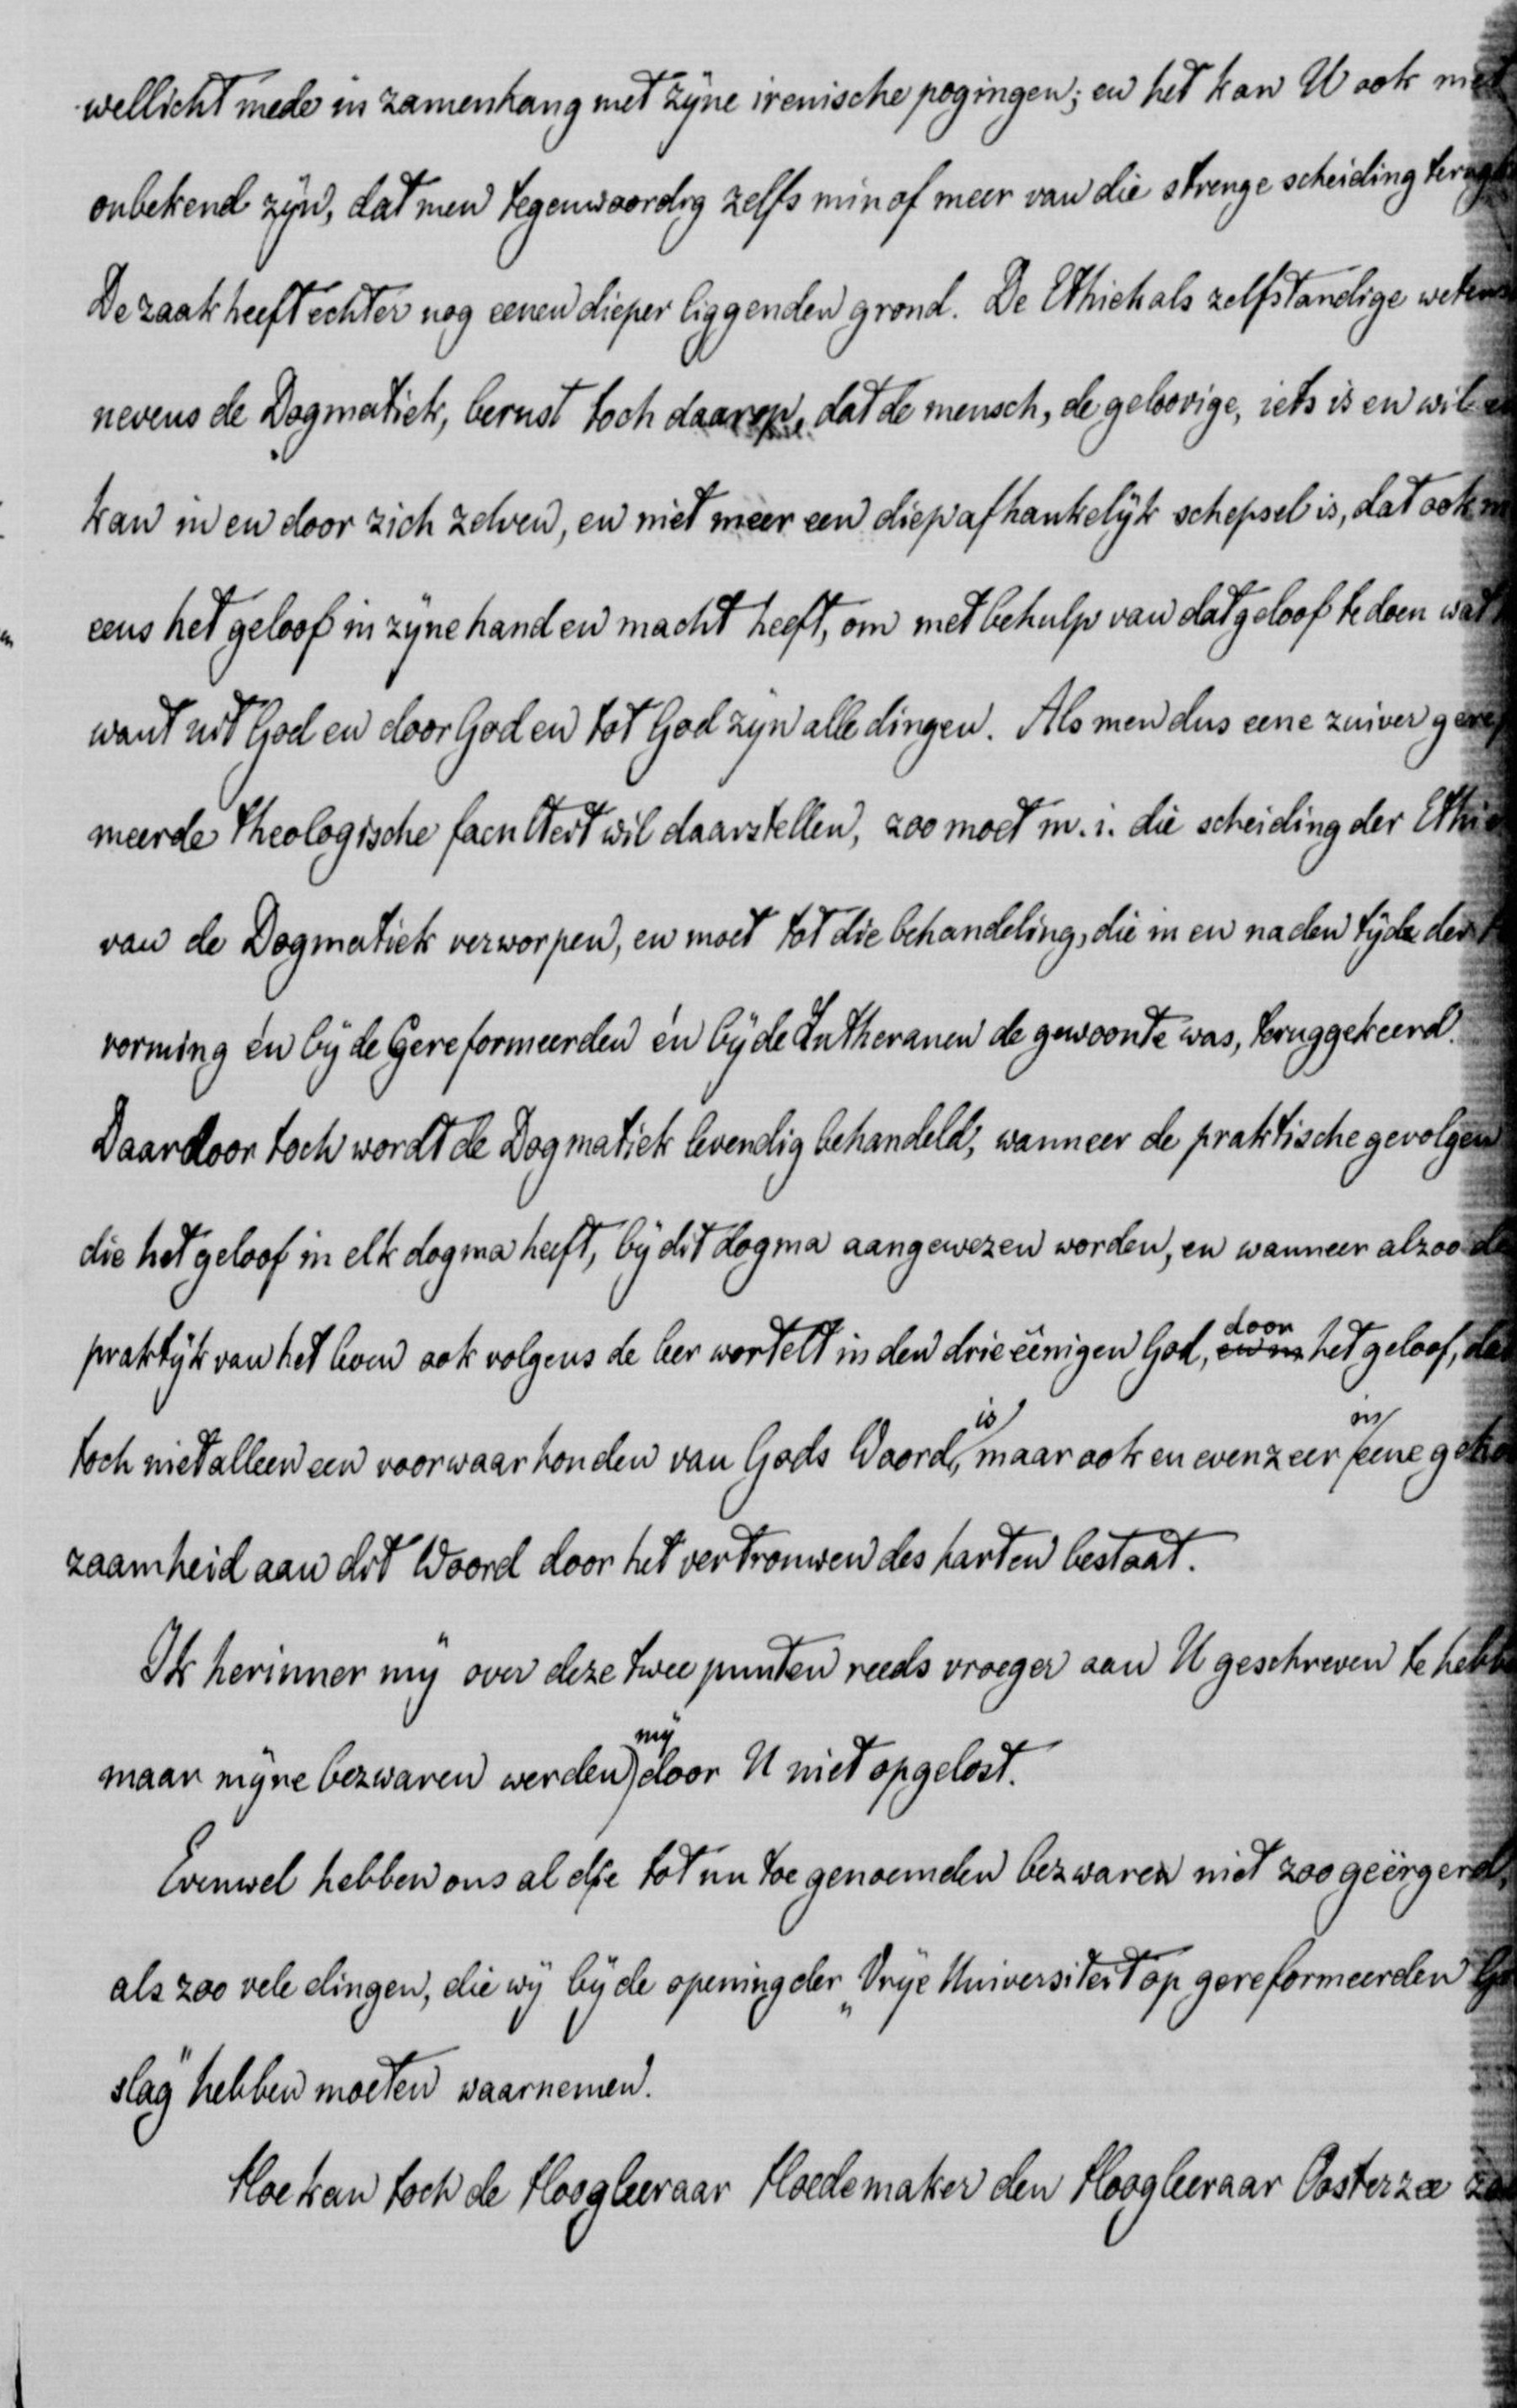 wellicht mede in zamenhang met zÿne irenische pogingen; en het kan U ook niet
onbekend zÿn, dat men tegenwoordig zelfs min of meer van die strenge scheiding terug
De zaak heeft echter nog eenen dieper liggenden grond. De Ethiek als zelfstandige wetens
nevens de Dogmatiek, berust toch daarop, dat de mensch, de geloovige, iets is en wil en
kan in en door zich zelven, en niet meer een diep afhankelÿk schepsel is, dat ook
eens het geloof in zÿne hand en macht heeft, om met behulp van dat geloof te doen wat
want uit God en door God en tot God zÿn alle dingen. Als men dus eene zuiver geref
meerde theologische faculteit wil daarstellen, zoo moet m. i. die scheiding der Ethie
van de Dogmatiek verworpen, en moet tot die behandeling, die in en na den tÿde der
vorming én bÿ de Gereformeerden én bÿ de Lutheranen de gewoonte was, teruggekeerd.
Daardoor toch wordt de Dogmatiek levendig behandeld, wanneer de praktische gevolgen
die het geloof in elk dogma heeft, bÿ dit dogma aangewezen worden, en wanneer alzoo de
praktÿk van het leven ook volgens de leer wortelt in den drieëenigen God, en in door het geloof, dat
toch niet alleen een voorwaarhouden van Gods Woord, is maar ook en evenzeer in eene geho
zaamheid aan dit Woord door het vertrouwen des harten bestaat.
Ik herinner mÿ over deze twee punten reeds vroeger aan U geschreven te hebbe
maar mÿne bezwaren werden mÿ door U niet opgelost.
Evenwel hebben ons al die tot nu toe genoemden bezwaren niet zoo geërgerd,
als zoo vele dingen, die wÿ bÿ de opening der „Vrÿe Universiteit op gereformeerden Gr
slag" hebben moeten waarnemen.
Hoe kan toch de Hoogleeraar Hoedemaker den Hoogleeraar Oosterzee zoo